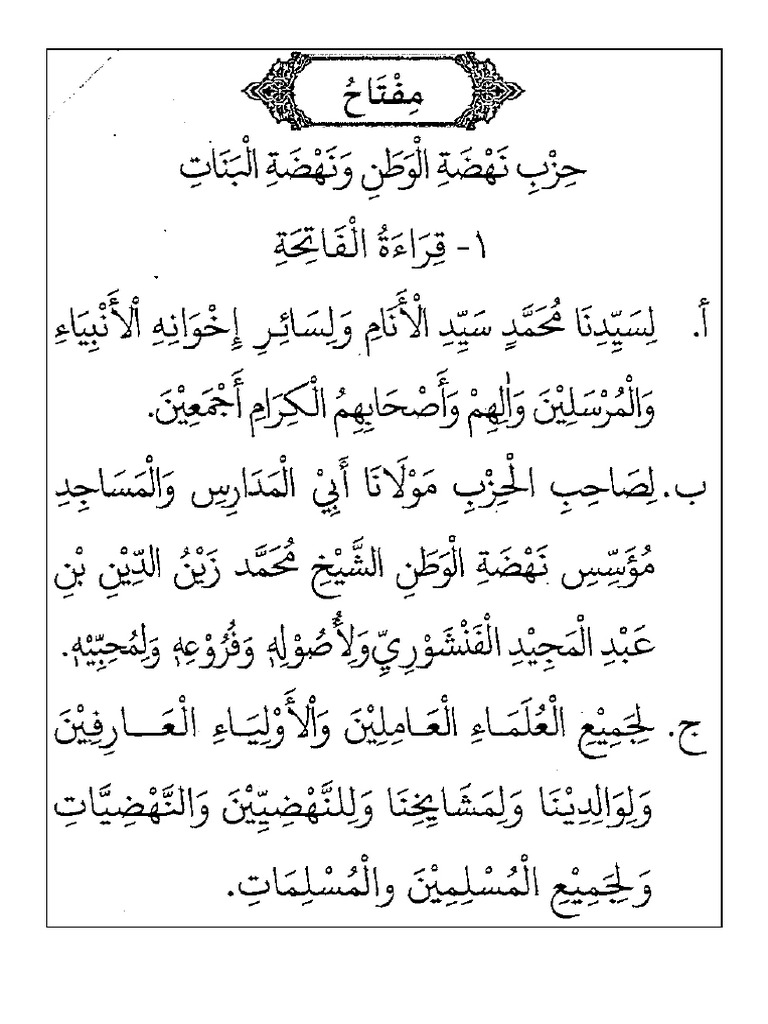 مِفْتَاحُ
حِزْبِ نَهْضَةِ الْوَطَنِ وَنَهْضَةِ الْبَنَاتِ
١- قِرَاءَةُ الْفَاتِحَةِ
أ. لِسَيِّدِنَا مُحَمَّدٍ سَيِّدِ الْأَنَامِ وَلِسَائِرِ إِخْوَانِهِ الْأَنْبِيَاءِ
وَالْمُرْسَلِيْنَ وَاٰلِهِمْ وَأَصْحَابِهِمُ الْكِرَامِ أَجْمَعِيْنَ.
ب. لِصَاحِبِ الْحِزْبِ مَوْلَانَا أَبِيْ الْمَدَارِسِ وَالْمَسَاجِدِ
مُؤَسِّسِ نَهْضَةِ الْوَطَنِ الشَّيْخِ مُحَمَّد زَيْنُ الدِّيْنِ بْنِ
عَبْدِ الْمَجِيْدِ الْفَنْشَوْرِيِّ وَلِأُصُوْلِهٖ وَفُرُوْعِهٖ وَلِمُحِبِّيْهِ.
ج. لِجَمِيْعِ الْعُلَمَاءِ الْعَامِلِيْنَ وَالْأَوْلِيَاءِ الْعَارِفِيْنَ
وَلِوَالِدِيْنَا وَلِمَشَايِخِنَا وَلِلنَّهْضِيِّيْنَ وَالنَّهْضِيَّاتِ
وَلِجَمِيْعِ الْمُسْلِمِيْنَ والْمُسْلِمَاتِ.